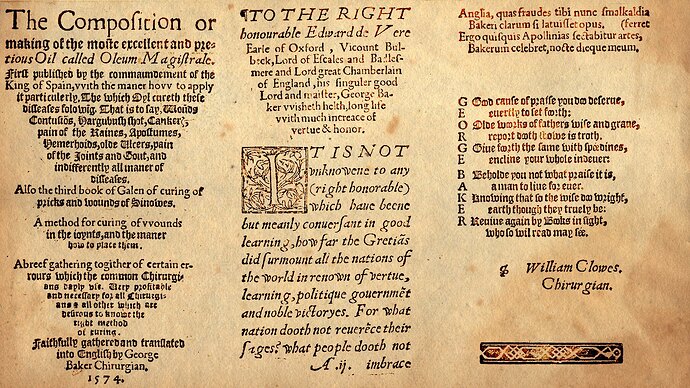 The Composition or
making of the moste excellent and pre-
tious Oil called Oleum Magistrale.
First published by the commaundement of the
King of Spain, vvith the maner hovv to apply
it particularly, The which Oyl cureth these
diseases folowig. That is to say, Wounds
Contusiõs, Hargubush shot, Cankers,
pain of the Raines, Apostumes,
Hemerhoids, olde Ulcers, pain
of the Joints and Gout, and
indifferently all maner of
diseases.
Also the third book of Galen of curing of
pricks and wounds of Sinowes.
A method for curing of vvounds
in the ioynts, and the maner
how to place them.
A breef gathering togither of certain er-
rours which the common Chirurgi-
ans dayly vse. Very profitable
and necessary for all Chirurgi-
ans & all other which are
desirous to knowe the
right method
of curing.
Faithfully gathered and translated
into English by George
Baker Chirurgian.
1574.
¶TO THE RIGHT
honourable Edward de Vere
Earle of Oxford, Vicount Bul-
beck, Lord of Escales and Badles-
mere and Lord great Chamberlain
of England, his singuler good
Lord and maister, George Ba-
ker vvisheth helth, long life
vvith much increace of
vertue & honor.
IT IS NOT
vnknowene to any
(right honorable)
which haue beene
but meanly conuersant in good
learning, how far the Greciãs
did surmount all the nations of
the world in renown of vertue,
learning, politique gouernmẽt
and noble victoryes. For what
nation dooth not reuerẽce their
sages? what people dooth not
A.ij. imbrace
Anglia, quas fraudes tibi nunc smalkaldia
Bakeri clarum si latuisset opus. (ferret
Ergo quisquis Apollinias sectabitur artes,
Bakerum celebret, nocte dieque meum.
GOod cause of praise you doo deserue,
Euertly to set forth:
Olde works of fathers wise and graue,
report doth showe is troth.
Giue forth the same with speedines,
encline your whole indeuer:
Beholde you not what praise it is,
A man to liue for euer.
Knowing that so the wise do wright,
earth though they truely be:
Reuiue again by Books in sight,
who so wil read may see.
William Clowes.
Chirurgian.